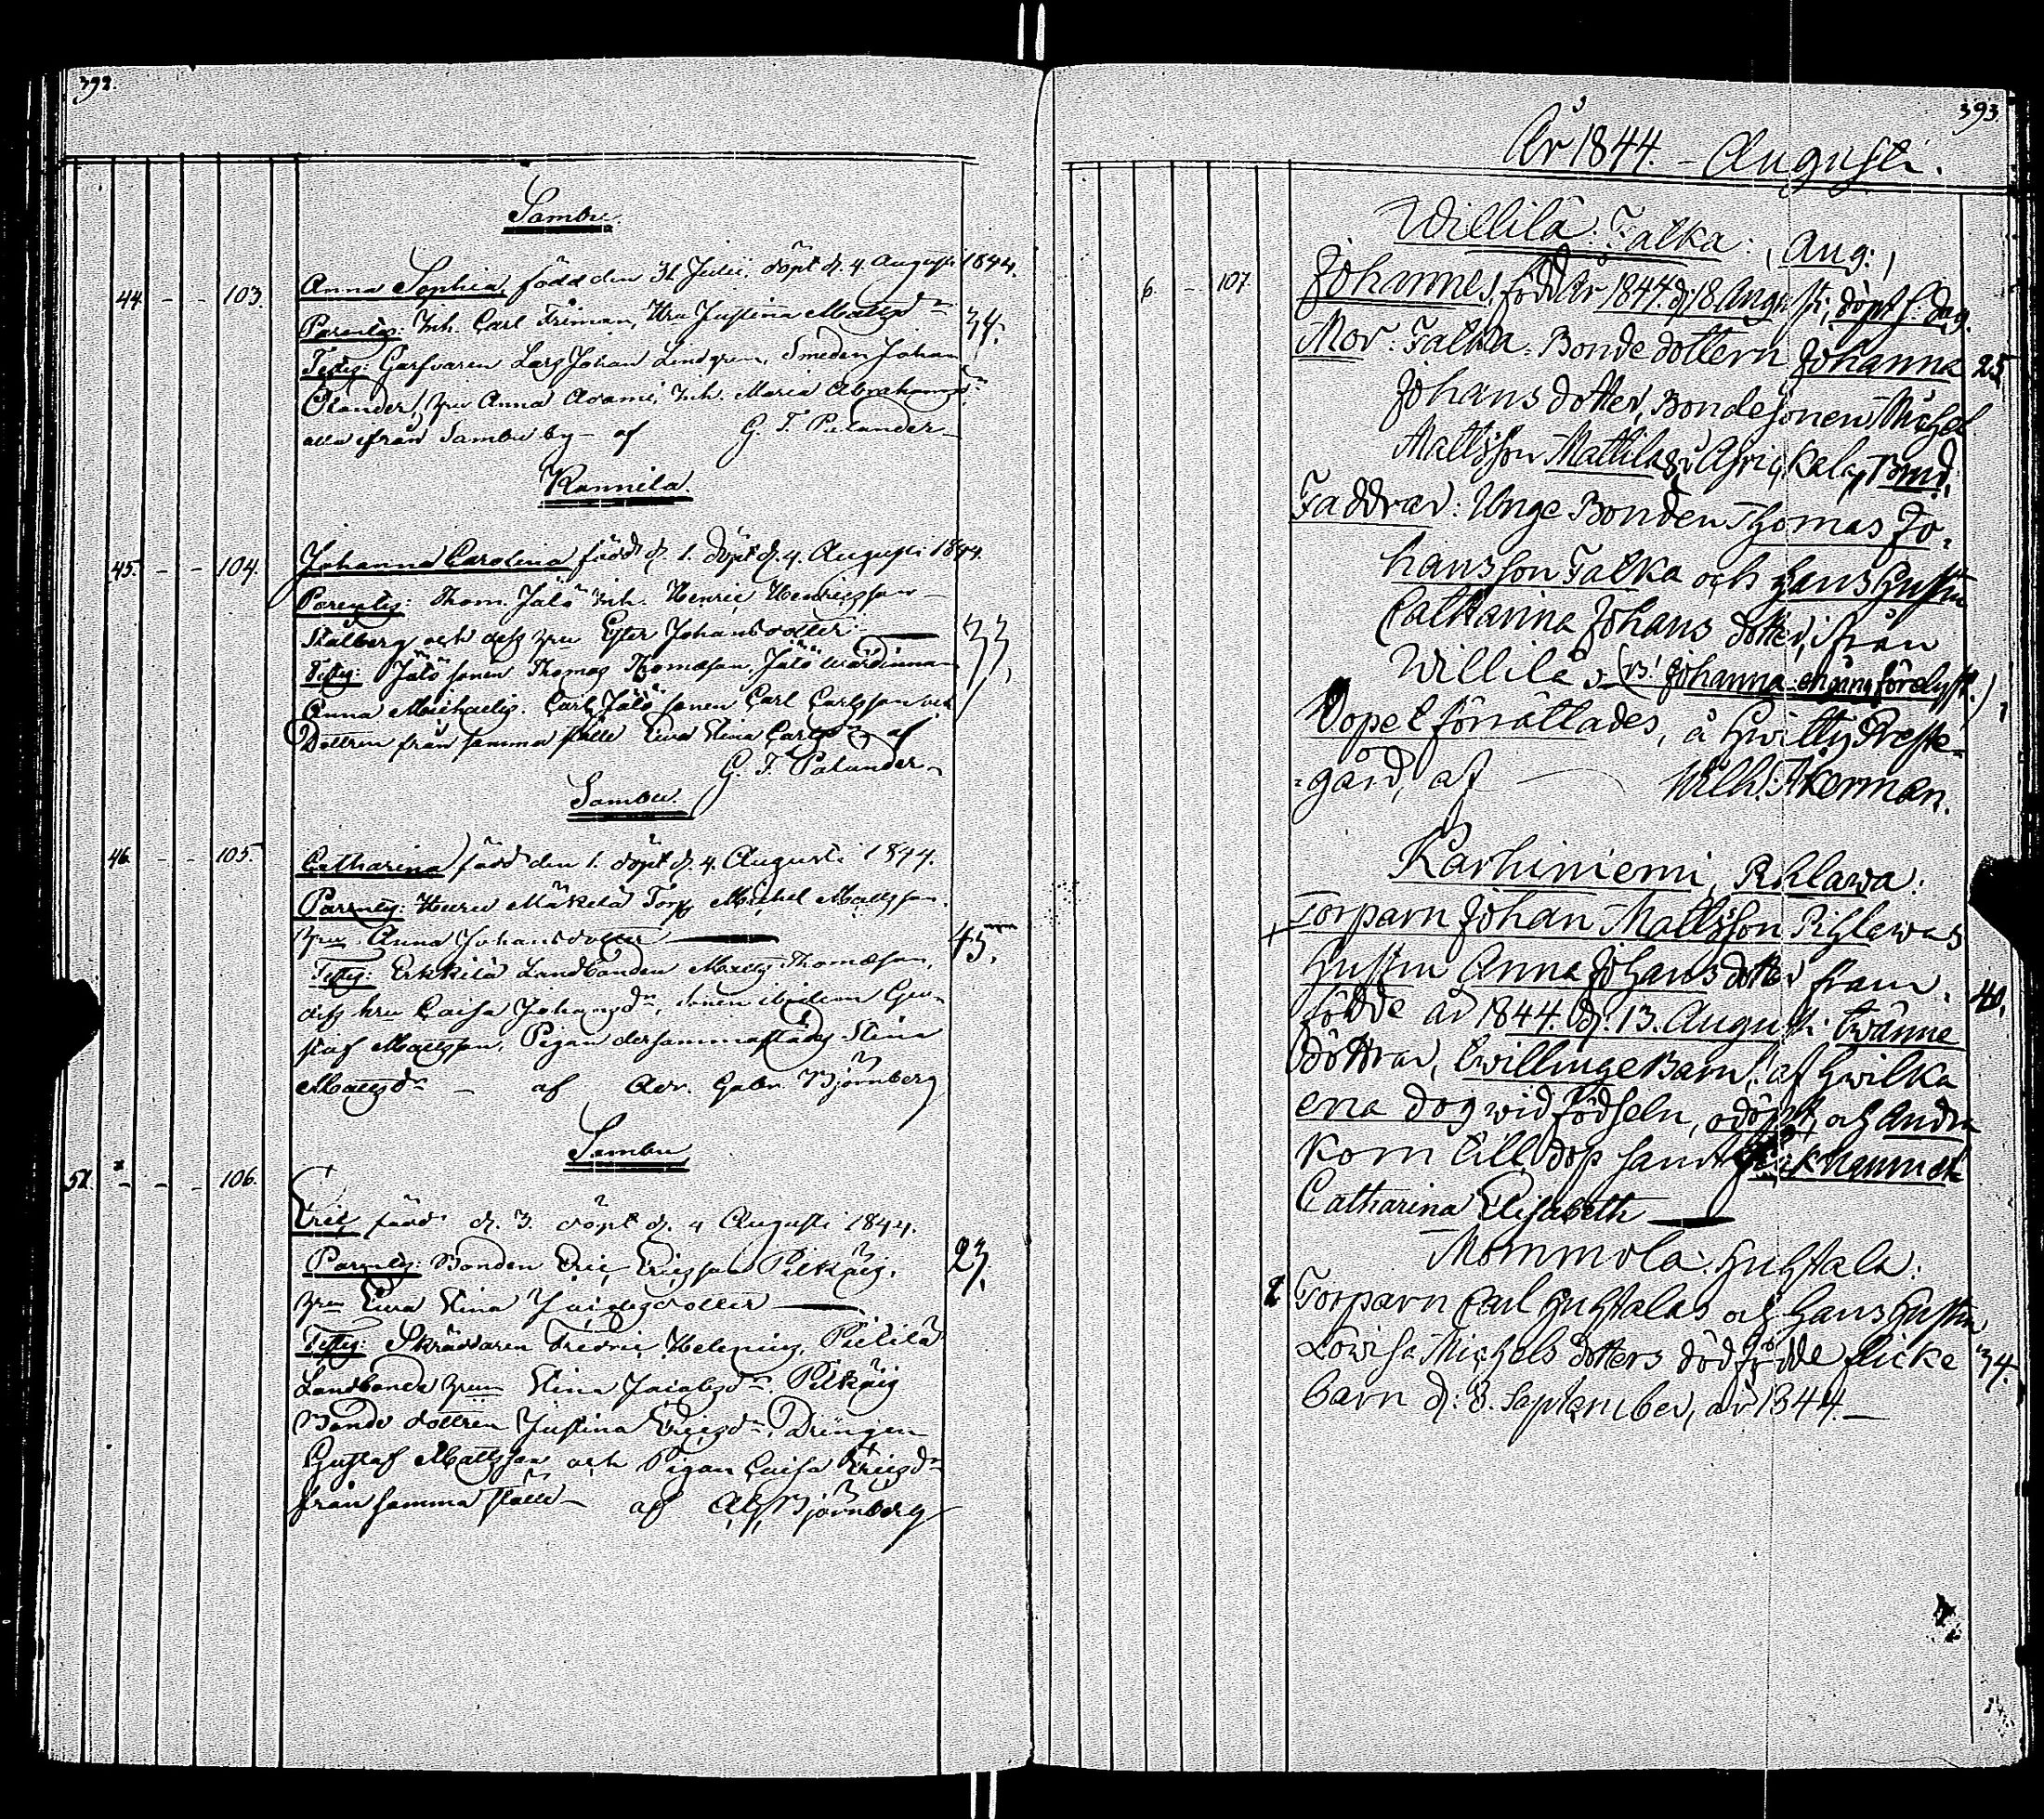 392.
Sambu
44. - - 103. Anna Sophia, född den 31 Julii, döpt d. 4. Augusti 1844.
Parentes: Inh. Carl Friman, Hru Justina Mattsdr 34.
Testes: Garfvaren Lars Johan Lindgren, Smeden Johan
Ölander, hru Anna Adami, Inh. Maria Abrahamsdr
alla ifrån Sambu by - af G. F. Palander
Kannila.
45. - - 104. Johanna Carolina född d. 1. döpt d. 4. Augusti 1844.
Parentes: Thom. Jålö Inh. Henric Henricsson
Stålberg och dess hru Ester Johansdotter 33.
Testes: Jålö sonen Thomas Thomasson, Jålö wärdinnan
Anna Michaelis. Carl Jålö sonen Carl Carlsson och
Dottren från samma ställe Ewa Stina Carlsdr af
G. F. Palander
Sambu.
46. - - 105. Catharina född den 1. döpt d. 4. Augusti 1844.
Parentes: Mäkelä Torp. Michel Mattsson.
hru Anna Johansdotter 45.
Testes: Erkkilä Landbonden Matts Thomasson,
dess hru Caisa Johansdr, sonen ibidem Gu-
staf Mattsson, Pigan dersammastädes Stina
Mattsdr - af Adr. Gabr. Björnberg
Sambu
52. - - - 106.
Eric född d. 3. döpt d. 4 Augusti 1844.
Parentes: Bonden Eric Ericsson Pilkäis. 23.
hru Ewa Stina Jacobsdotter
Testes: Skräddaren Fredric Helenius, Pietilä
Landbonde hrun Stina Jacobsdr Pilkäis
Bonde dottren Justina Ericsdr, Drängen
Gustaf Mattsson och Pigan Caisa Ericsdr
från samma ställe - af Björnberg
393.
År 1844. - Augusti.
Willilä: Falka: (Aug:)
6. - 107. Johannes, född År 1844. d. 18 Augusti, döpt s: dag.
Mor: Falka: Bonde dottern Johanna 25
Johans dotter, Bondesonen Michel
Mattsson Mattilas i
Faddrar: Unge Bonden Thomas Jo-
hansson Falka och hans hustru
Catharina Johans dotter, ifrån
Willilä
Dopet förrättades, å Hvittis Preste-
-gård, af Wilh: Åkerman.
Karhiniemi, Pihlawa:
Torparn Johan Mattsson Pihlawas
hustru Anna Johans dotter fram- 40.
födde år 1844. d. 13. Augusti twänne
döttrar, twillinge Barn, af hwilka
ena dog wid födseln, odöpt, och andra
kom till dop samt
Catharina Elisabeth
Mommola: Huhtala:
2 Torparn Carl Huhtalas och hans hustru
Lowisa Michels dotters död födde flicke 34.
barn d: 8. September, år 1844